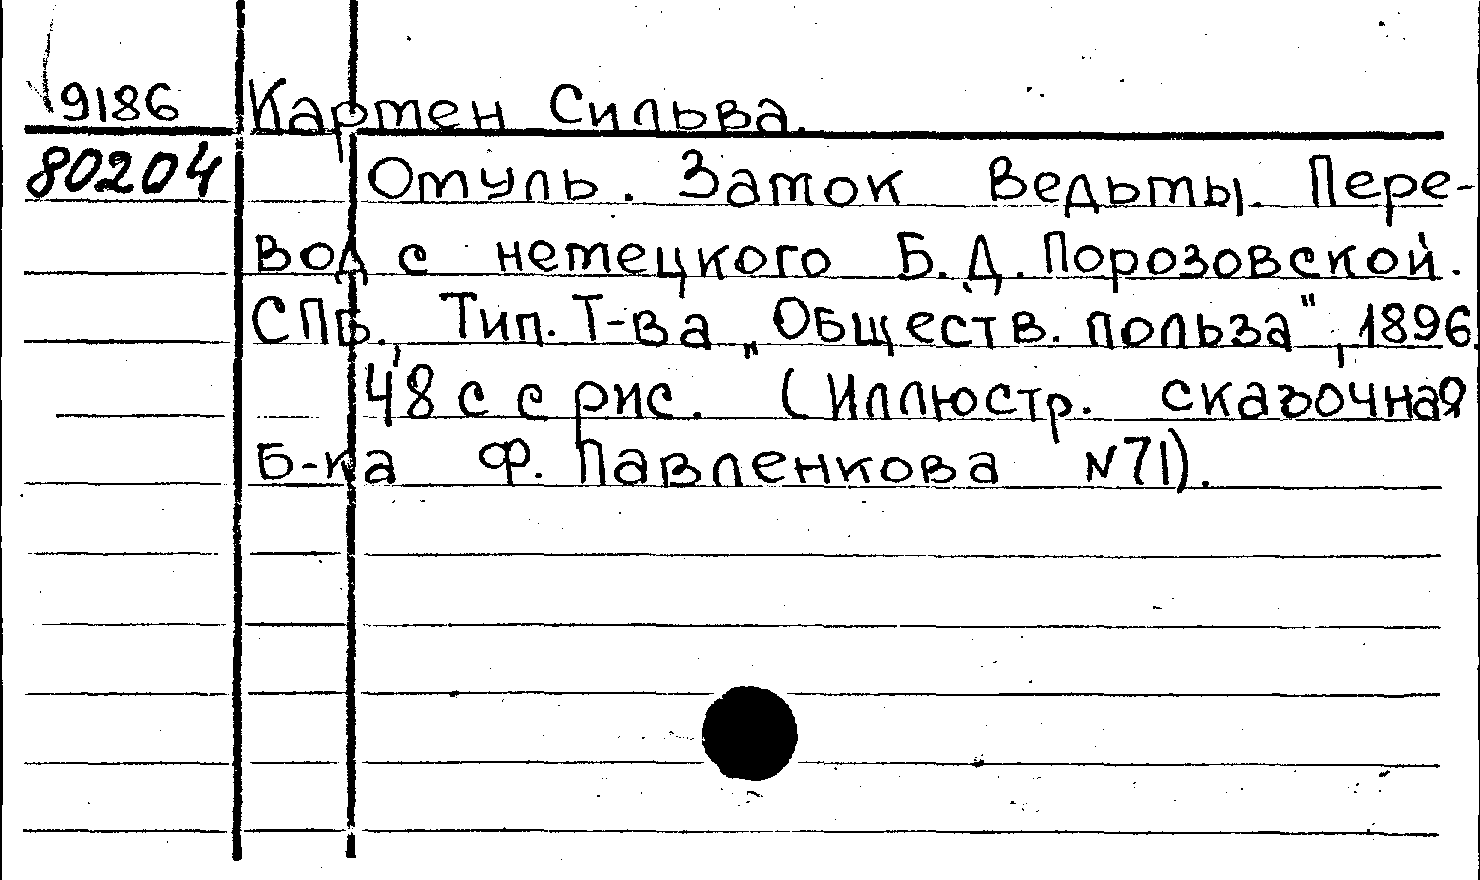 9186 Картен Сильва.
80204 Отуль. Заток Ведьты. Пере-
вод с немецкого Б.Д. Порозовской.
СПб., Тип. Т-ва „Обществ. польза", 1896.
48 с с рис. (Иллюстр. сказочная
б-ка Ф. Павленкова N71).